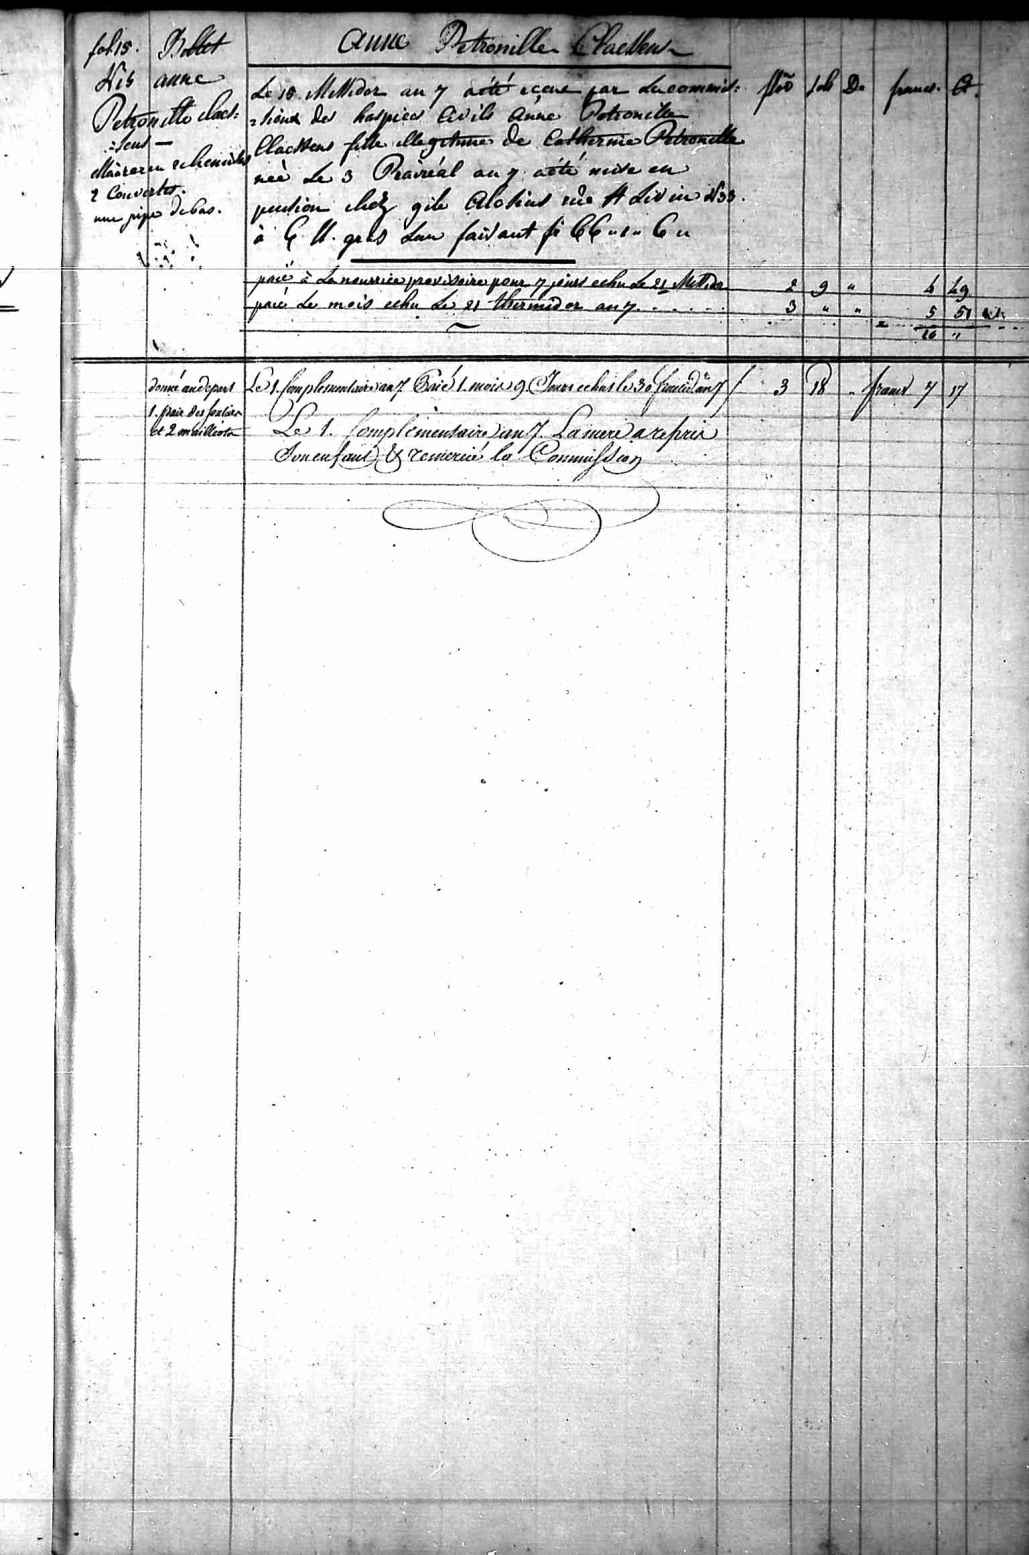 fol 15. Bollet
N 5 anne
Petronille claes=
=sens —
2 chemises
2 Couvertes.
une jupe de bas.
Anne Petronille Claessens
Le 18 Messidor an 7 a été reçue par la commis=
=sions des hospices Civils Anne Petronille
Claessens fille illegitime de Catherine Petronille
née Le 3 Prairéal an 7 a été mise en
pension chez gile Aloskus rue St Livin N 33.
à 6 ll. gros L'an faisant fr 66 " 1 " 6 "
flo sols De francs. Ct.
paié à La nourrice provisoire pour 7 jours echu Le 21 Messidor 2 9 " 4 49
paié Le mois echu Le 21 thermidor an 7 . . . . . . 3 " " 5 51
10 "
donné au depart
1. paire des souliers
et 2 maillots
Le 1. Complementaire an 7 Paié 1. mois 9. Jours echus le 30 fructid: an 7 / 3 18 " francs 7 17
Le 1. Complementaire an 7. La mere a repris
Son enfant & remercié la Commission